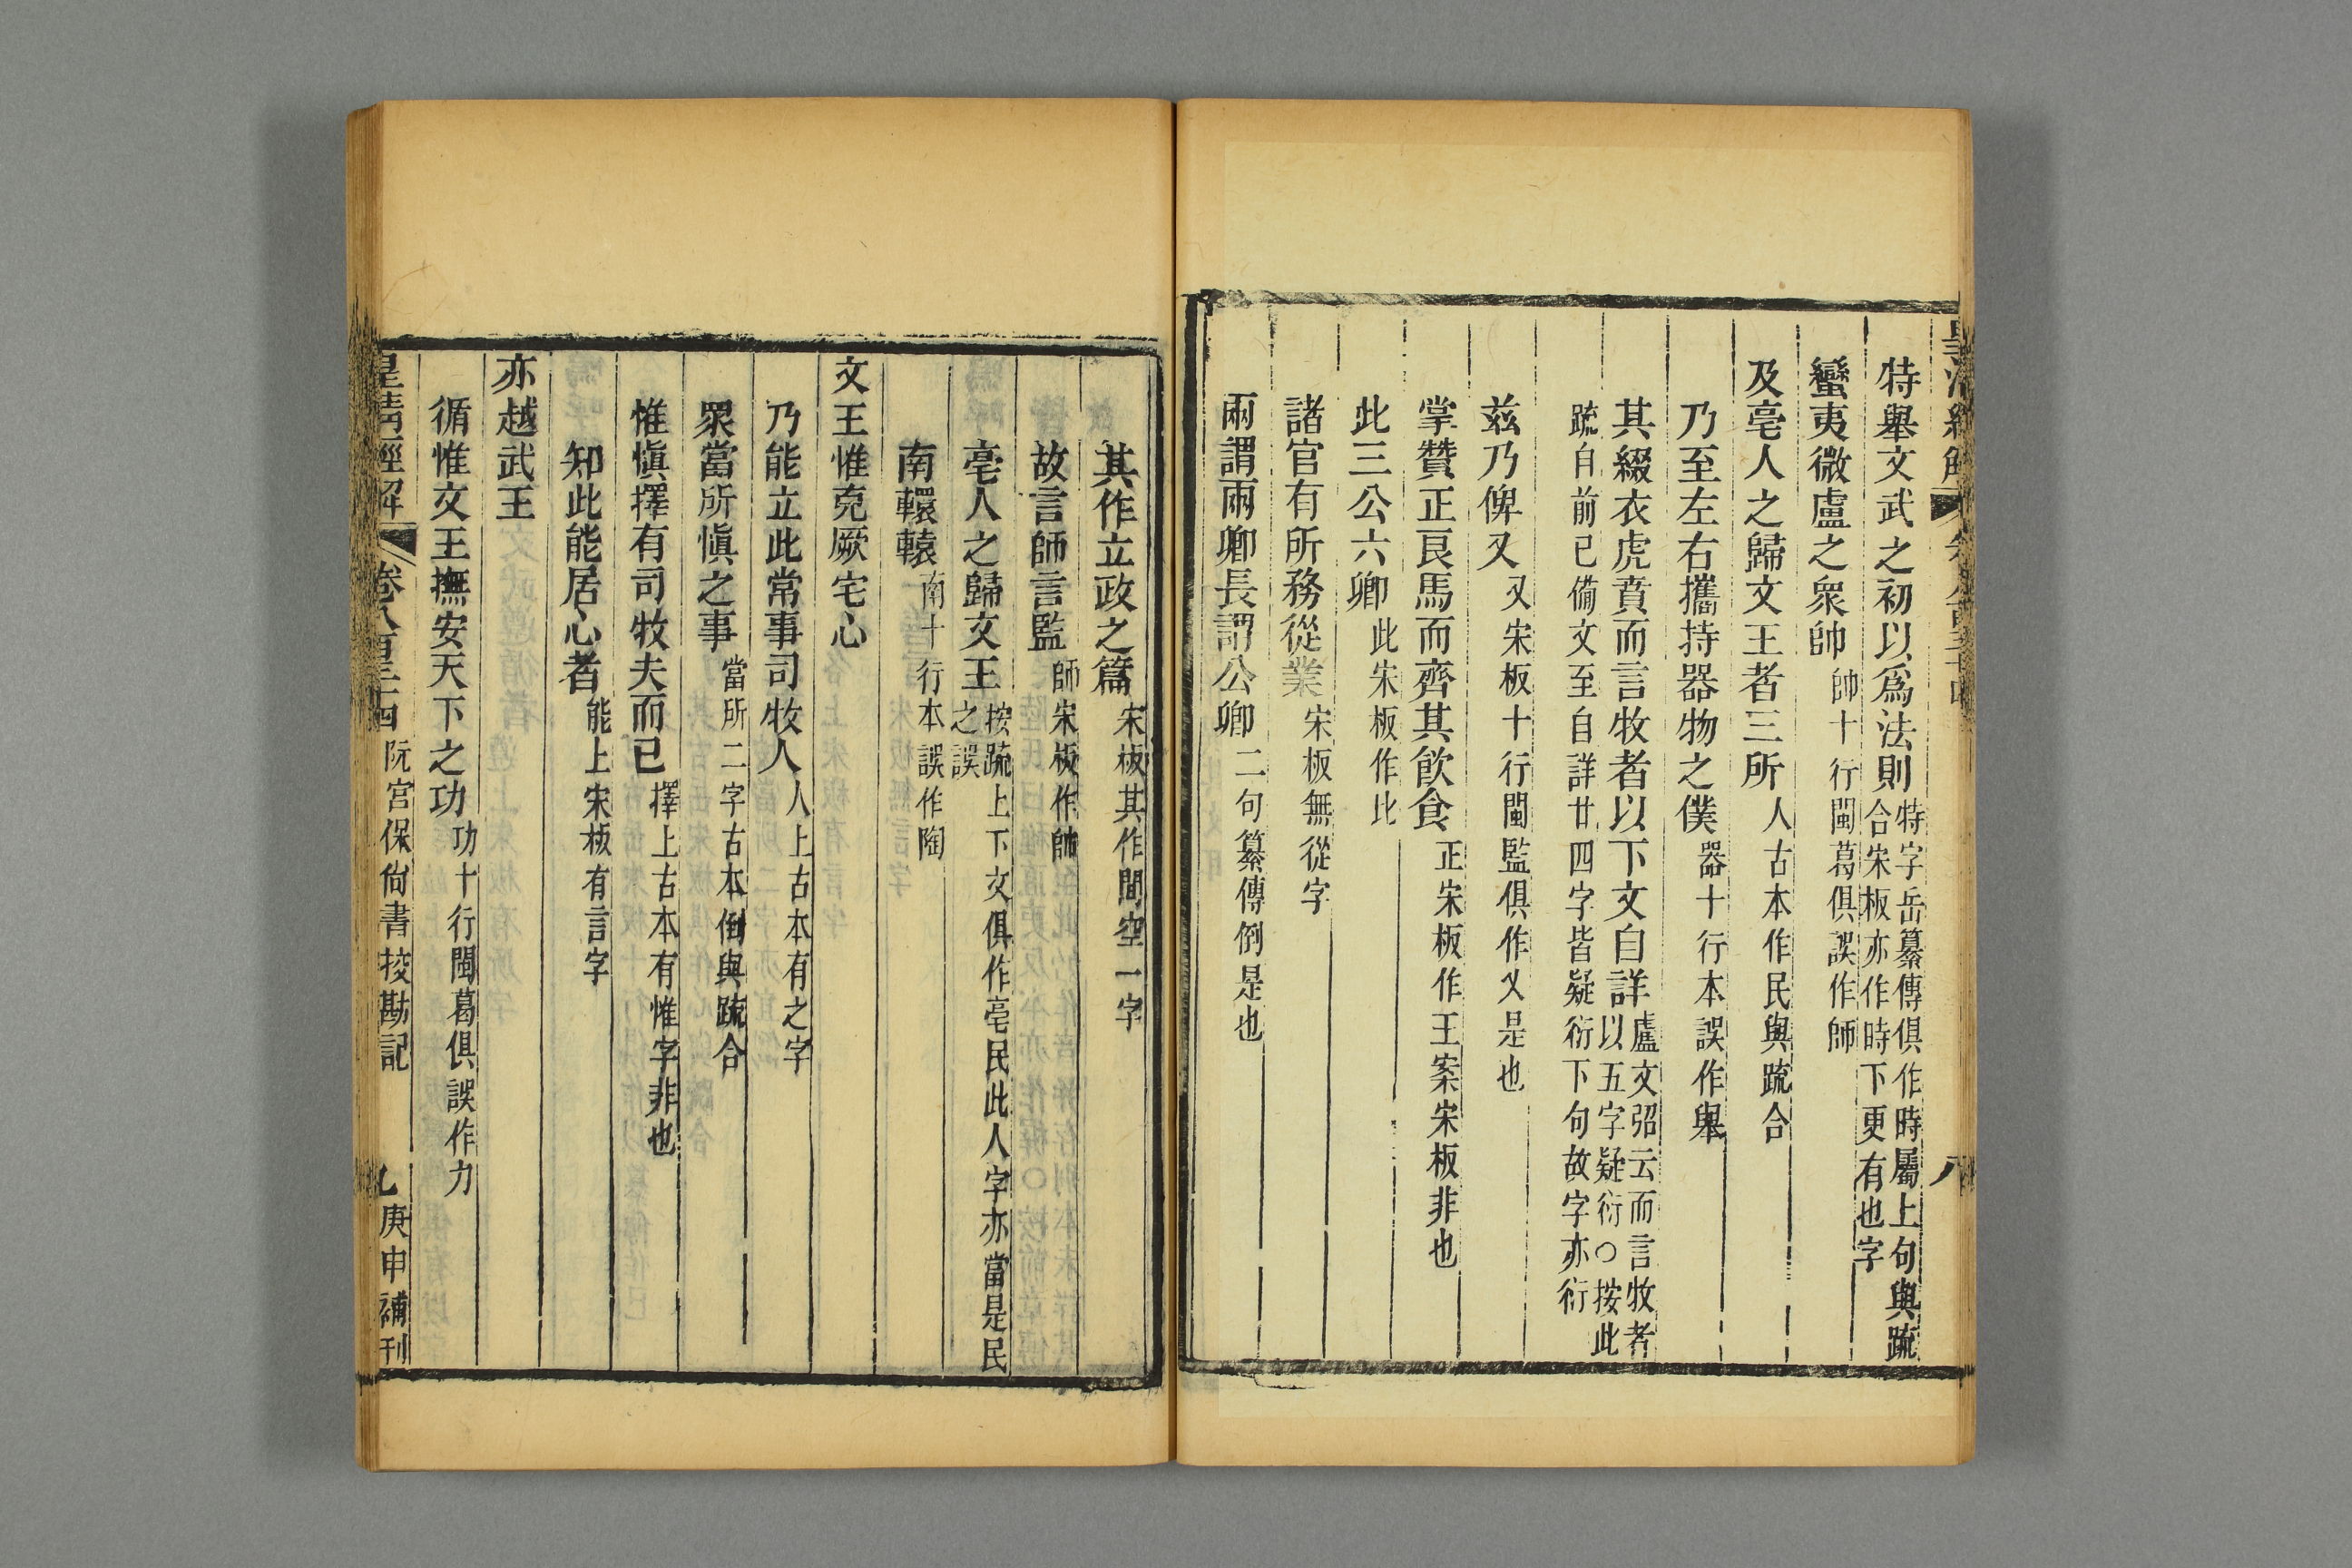 特舉文武之初以爲法則特字岳纂傳俱作時屬上句與䟽合宋板亦作時下更有也字
蠻夷微盧之衆帥帥十行閩葛俱誤作師
及亳人之歸文王者三所人古本作民與䟽合
乃至左右攜持器物之僕器十行本誤作舉
其綴衣虎賁而言牧者以下文自詳盧文弨云而言牧者以五字疑衍○按此
䟽自前已備文至自詳廿四字皆疑衍下句故字亦衍
茲乃俾又又宋板十行閩監俱作乂是也
掌贊正良馬而齊其飮食正宋板作王案宋板非也
此三公六卿此宋板作比
諸官有所務從業宋板無從字
兩謂兩卿長謂公卿二句纂傳倒是也
其作立政之篇宋板其作間空一字
故言師言監師宋板作帥
亳人之歸文王按䟽上下文俱作亳民此人字亦當是民之誤
南轘轅南十行本誤作陶
文王惟克厥宅心
乃能立此常事司牧人人上古本有之字
衆當所愼之事當所二字古本倒與䟽合
惟愼擇有司牧夫而已擇上古本有惟字非也
知此能居心者能上宋板有言字
亦越武王
循惟文王撫安天下之功功十行閩葛俱誤作力
皇清經解 卷八百三十四 阮宮保尙書挍勘記 九 庚申補刊